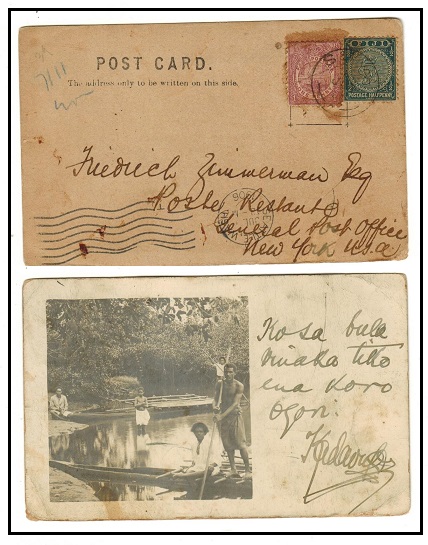 POST CARD.
The address only to be written on this side.
FIJI
POSTAGE HALFPENNY
Friedrich Zimmerman Esq
Poste Restant
General Post Office
New York U.S.a
Kosa bula
vinaka tiko
ena koro
ogori.